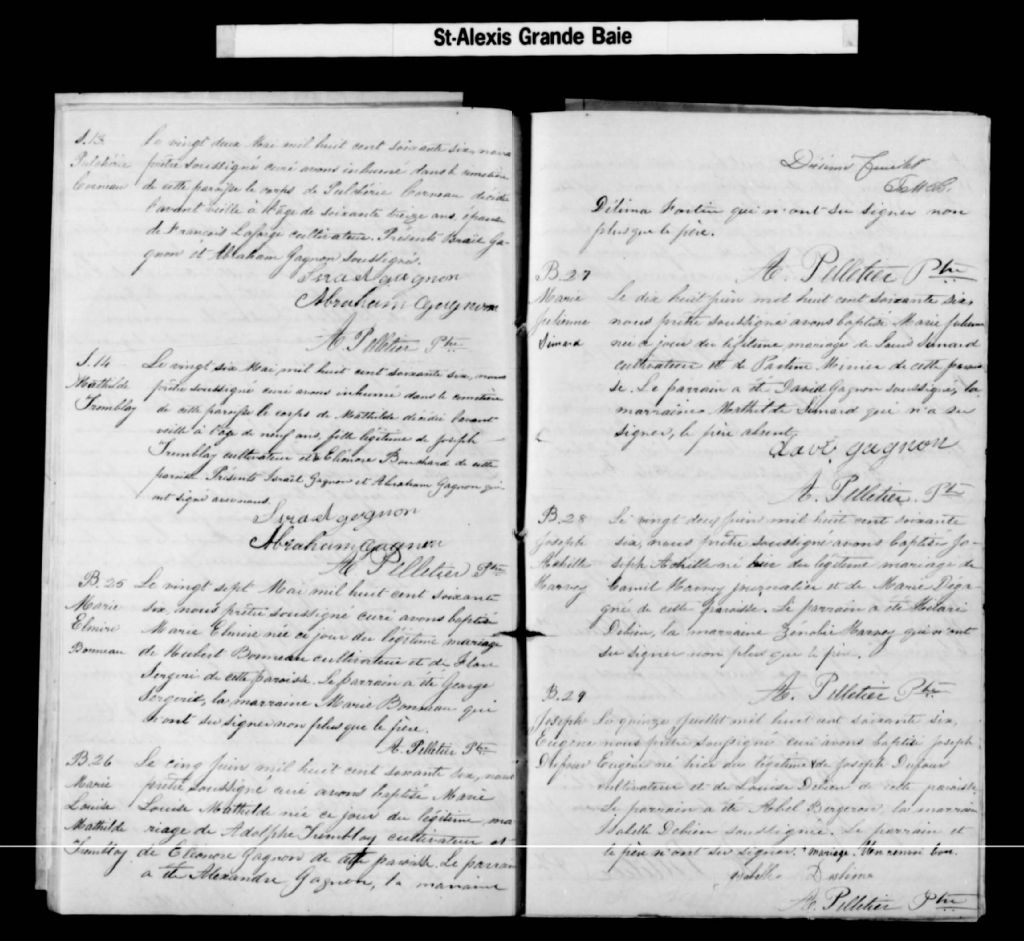 St-Alexis Grande Baie
S.13 Le vingt deux Mai mil huit cent soixante six, nous
Pulchérie prêtre soussigné curé avons inhumé dans le cimetière
de cette paroisse le corps de Pulchérie décédée
l'avant veille à l'âge de soixante treize ans, épouse
de François Laforge cultivateur. Présents Israël Ga-
gnon et Abraham Gagnon soussignés.
Israel gagnon
Abraham Gagnon
A. Pelletier Ptre
S.14 Le vingt six Mai, mil huit cent soixante six, nous
Mathilde prêtre soussigné curé avons inhumé dans le cimetière
Tremblay de cette paroisse le corps de Mathilde décédée l'avant
veille à l'âge de neuf ans, fille légitime de Joseph
Tremblay cultivateur et d'Elénore Bouchard de cette
paroisse. Présents Israël Gagnon et Abraham Gagnon qui
ont signé avec nous.
Israel gagnon
Abraham gagnon
A. Pelletier Ptre
B.25 Le vingt sept Mai mil huit cent soixante
Marie six, nous prêtre soussigné curé avons baptisé
Elmire Marie Elmire née ce jour du légitime mariage
Bonneau de Hubert Bonneau cultivateur et de
de cette paroisse. Le parrain a été George
la marraine Marie Bonneau qui
n'ont su signer non plus que le père.
A. Pelletier Ptre
B.26 Le cinq juin mil huit cent soixante six, nous
Marie prêtre soussigné curé avons baptisé Marie
Louise Louise Mathilde née ce jour du légitime ma
Mathilde riage de Adolphe Tremblay cultivateur et
Tremblay de Eléonore Gagnon de cette paroisse. Le parrain
a été Alexandre Gagnon, la marraine
Délima Fortin qui n'ont su signer non
plus que le père.
A. Pelletier Ptre
B.27
Marie Le dix huit juin mil huit cent soixante six
Julienne nous prêtre soussigné avons baptisé Marie Julienne
Simard née ce jour du légitime mariage de Simard
cultivateur et de de cette parois
se. Le parrain a été David Gagnon soussigné, la
marraine Mathilde Simard qui n'a su
signer, le père absent.
davi gagnon
A. Pelletier. Ptre
B.28 Le vingt deux juin mil huit cent soixante
Joseph six, nous prêtre soussigné avons baptisé Jo-
Achille seph Achille né hier du légitime mariage de
Harvey Camil Harvey journalier et de Marie
de cette paroisse. Le parrain a été Hilaire
Debien, la marraine Zénobie Harvey qui n'ont
su signer non plus que le père.
A. Pelletier Ptre
B.29
Joseph Le quinze Juillet mil huit cent soixante six,
Eugène nous prêtre soussigné curé avons baptisé Joseph
Dufour Eugène né hier du légitime + de Joseph Dufour
cultivateur et de Louise Debien de cette paroisse.
Le parrain a été Abel Bergeron, la marraine
Isabelle Debien soussignée. Le parrain et
le père n'ont su signer. + mariage. Un renvoi bon.
A. Pelletier Ptre